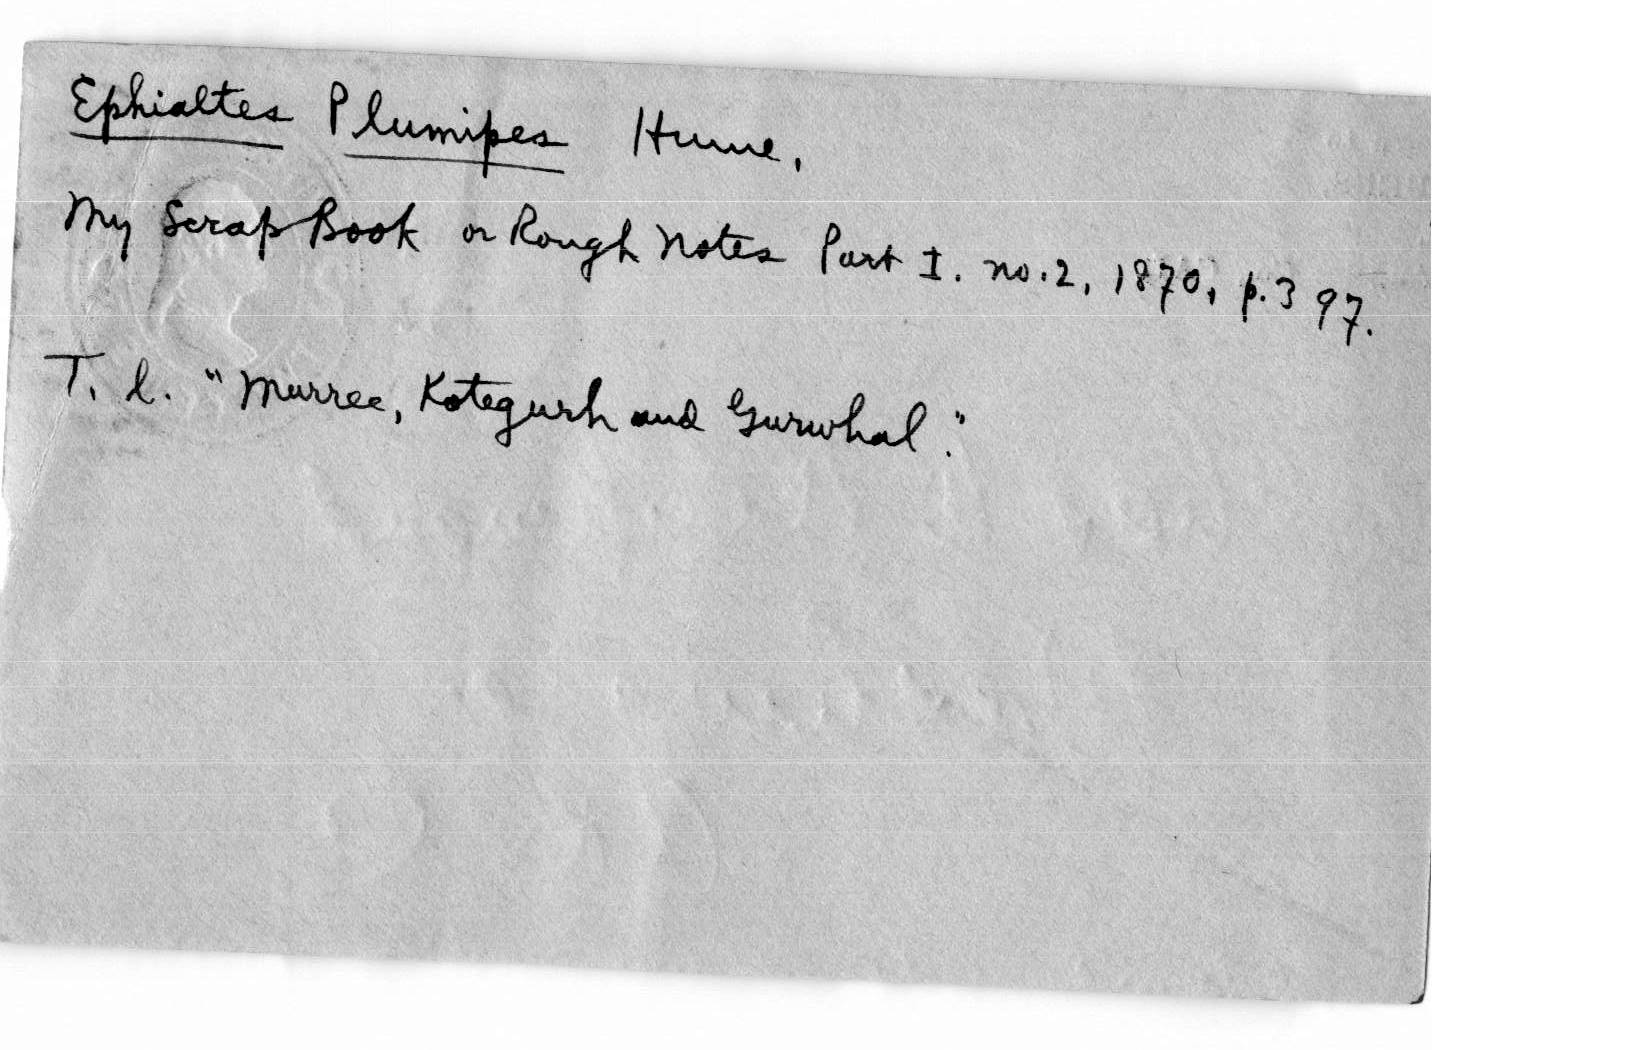 Ephialtes Plumipes Hume,
My Scrap Book or Rough Notes Part I. no.2, 1870, p.397.
T. l. "Murree, Kotegurh and Gurwhal".